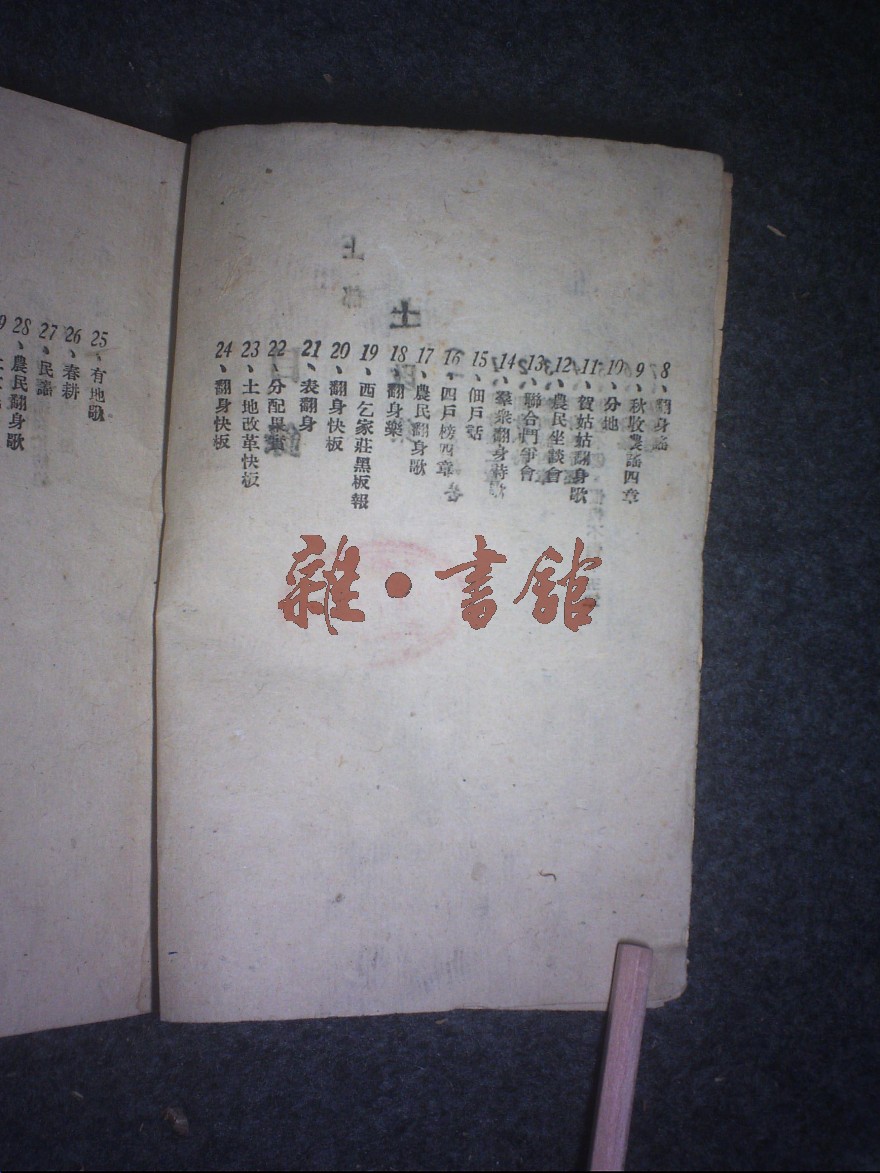 8、翻身謠
9、秋收農謠四章
10、分地
11、賀姑姑翻身歌
12、農民坐談會
13、聯合鬥爭會
14、羣衆翻身詩
15、佃戶話
16、四戶榜四章
17、農民翻身歌
18、翻身樂
19、西乞家莊黑板報
20、翻身快板
21、表翻身
22、分配果實
23、土地改革快板
24、翻身快板
25、有地歌
26、春耕
27、民謠
28、農民翻身歌
雜·書館